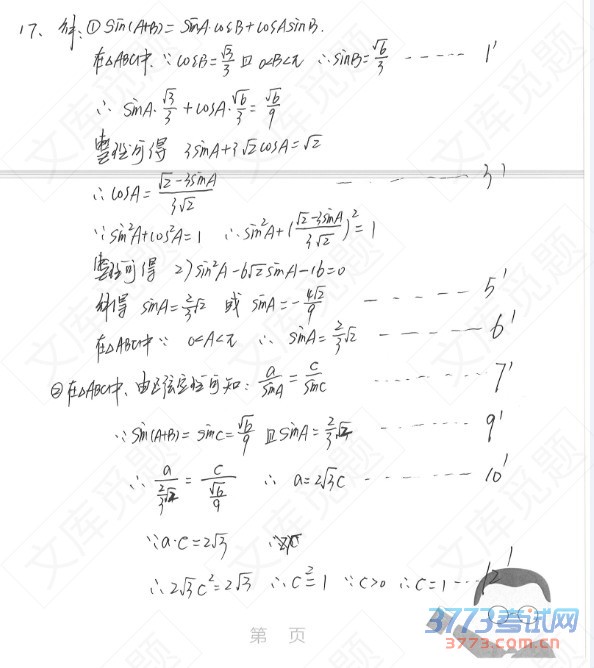 17、解:① Sin(A+B)= SinA·cosB+cosAsinB.
在△ABC中,∵cosB=√3/3 且 0<B<π ∴sinB=√6/3 ----- 1'
∴ sinA·√3/3 + cosA·√6/3 = √6/9
整理可得 3sinA+3√2cosA=√2
∴cosA= (√2-3sinA)/(3√2) ------ 3'
∵sin²A+cos²A=1 ∴sin²A+((√2-3sinA)/(3√2))²=1
整理可得 27sin²A-6√2sinA-16=0
解得 sinA=2/3√2 或 sinA=-4√2/9 ----- 5'
在△ABC中∵ 0<A<π ∴ sinA=2/3√2 ------ 6'
②在△ABC中,由正弦定理可知: a/sinA = c/sinC ------ 7'
∵sin(A+B)=sinC=√6/9 且sinA=2/3√2 ------ 9'
∴ a/(2/3√2) = c/(√6/9) ∴ a=2√3c ------ 10'
∵a·c=2√3
∴2√3c²=2√3 ∴c²=1 ∵c>0 ∴c=1 --- 12'
第 页
3773考试网
www.3773.com.cn
文库觅题